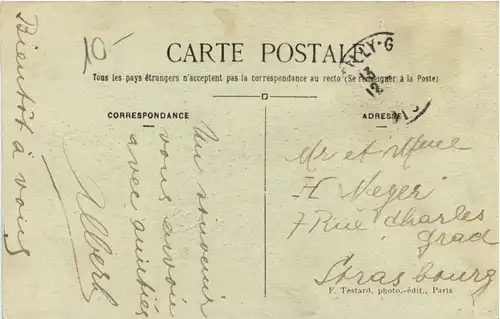 10-
CARTE POSTALE
Tous les pays étrangers n'acceptent pas la correspondance au recto (Se renseigner à la Poste)
CORRESPONDANCE
Un souvenir
vous envoie
avec amitiés
Albert
Bientôt à vous
ADRESSE
Mr et Mme
H Neger
7 Rue Charles
Grad
Strasbourg
F. Testard, photo.-édit., Paris
LLY-G
13
12